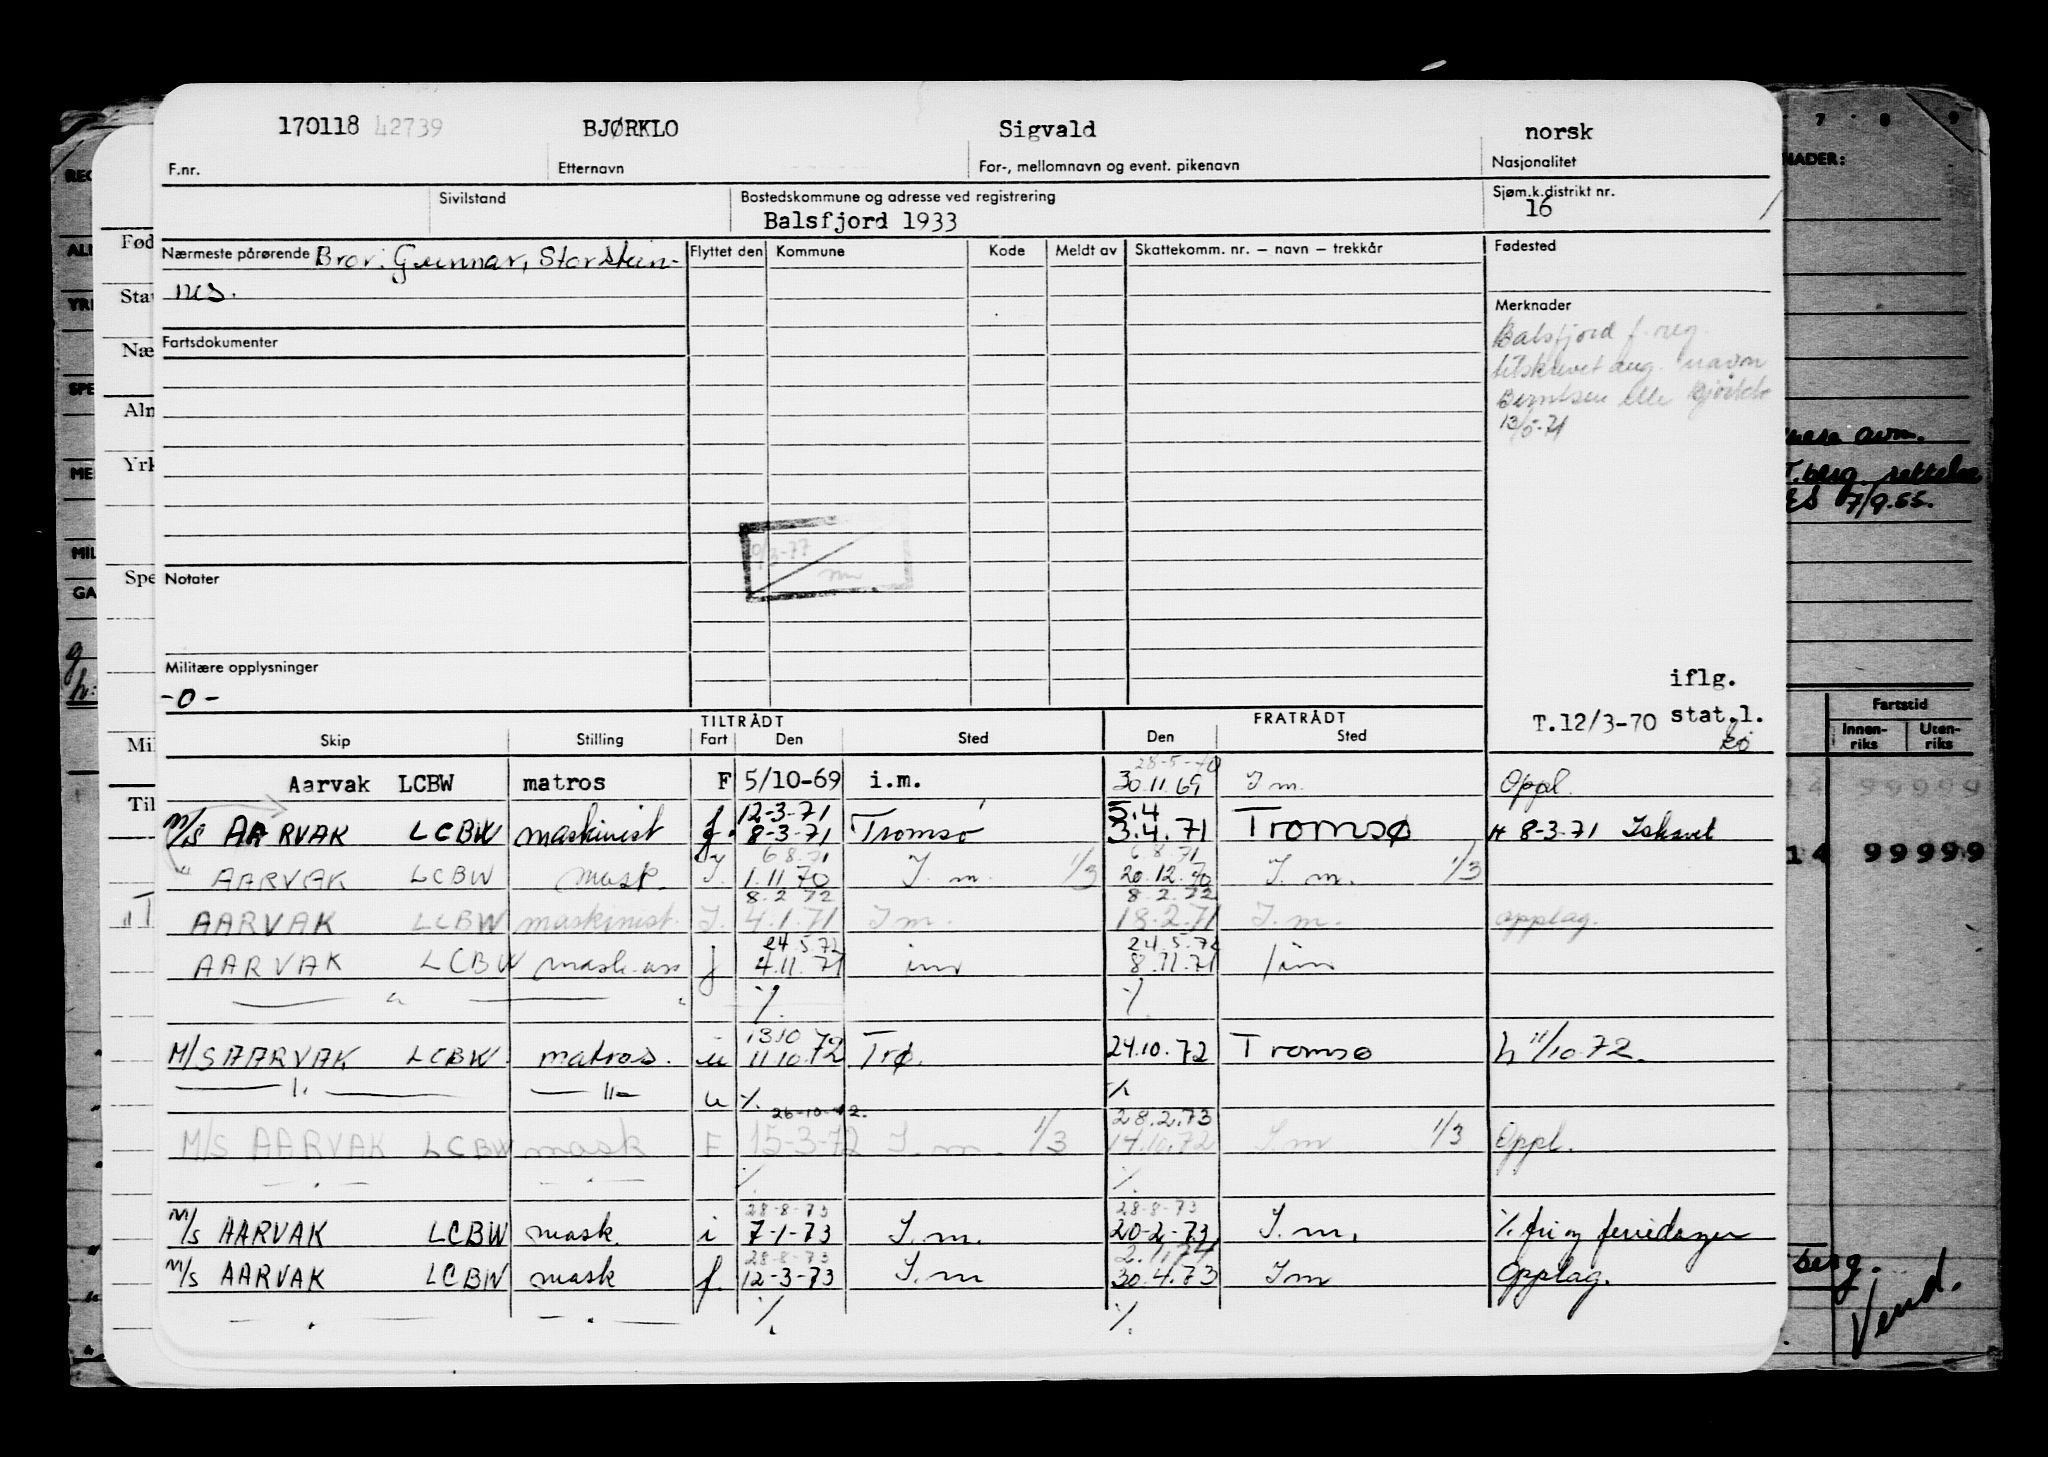 170118 42739 BJØRKLO Sigvald norsk
F.nr. Etternavn For-, mellomnavn og event. pikenavn Nasjonalitet
Sivilstand Bostedskommune og adresse ved registrering Sjøm.k.distrikt nr.
Balsfjord 1933 16
Nærmeste pårørende Bror: Gunnar, Storstein- Flyttet den Kommune Kode Meldt av Skattekomm. nr. – navn – trekkår Fødested
nes.
Merknader
Balsfjord f.reg.
tilskrevet ang. navn
Berntsen elle Bjørklo
13/5-71
Fartsdokumenter
Notater
Militære opplysninger
-0-
iflg.
T.12/3-70 stat.l.
kø
TILTRÅDT FRATRÅDT
Skip Stilling Fart Den Sted Den Sted
28-5-70
Aarvak LCBW matros F 5/10-69 i.m. 30.11.69 I m. Oppl.
12-3-71 5.4
M/S AARVAK LCBW maskinist f. 8-3-71 Tromsø 3.4.71 TROMSØ H 8-3-71 Ishavet
6.8.71 6.8.71
" AARVAK LCBW mask. I. 1.11.70 I. m. 1/3 20.12.70 I. m. 1/3
8.2 72 8.2.72
AARVAK LCBW maskinist. I. 4.1.71 I m. 18.2.71 I. m. opplag.
24.5.72 24.5.72
AARVAK LCBW mask.ass f 4.11.71 im 8.11.71 im
" ٪. ٪.
13.10 72
M/S AARVAK LCBW. matros. u 11.10.72 Trø. 24.10.72 Tromsø h 11/10.72.
— " — — " — u ٪. ٪.
26-10-72. 28.2.73
M/S AARVAK LCBW mask F 15-3-72 I. m. 1/3 14.10.72 I m 1/3 Oppl.
— " — — " — ٪. ٪.
28-8-73 28-8-73
M/S AARVAK LCBW mask. i 7-1-73 I. m. 20-2-73 I. m. ٪. fri og feriedager
28-8-73 2.1.74
M/S AARVAK LCBW mask f. 12-3-73 I. m 30.4.73 I m Opplag.
— " — — " — ٪. ٪.
Fød
Sta
Næ
Alm
Yrk
Spe
Mil
Til
7 8 9
NADER:
T.berg. rettelse
7/9.55.
Fartstid
Innen-
riks
Uten-
riks
14 99999
14 99999
berg.
Vend.